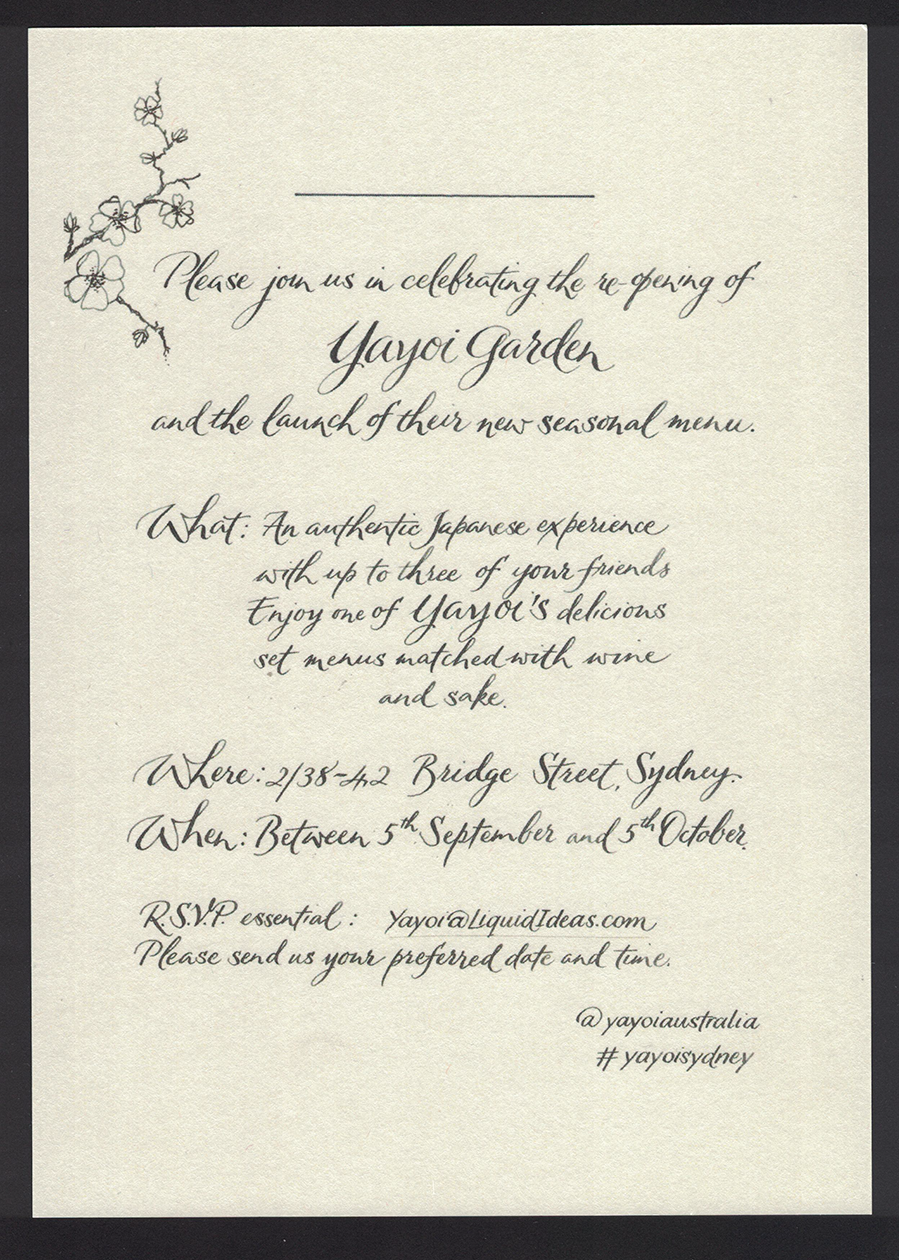 Please join us in celebrating the re-opening of
Yayoi Garden
and the launch of their new seasonal menu.
What: An authentic Japanese experience
with up to three of your friends
Enjoy one of Yayoi's delicious
set menus matched with wine
and sake.
Where: 2/38-42 Bridge Street, Sydney.
When: Between 5th September and 5th October.
R.S.V.P. essential: Yayoi@LiquidIdeas.com
Please send us your preferred date and time.
@yayoiaustralia
#yayoisydney